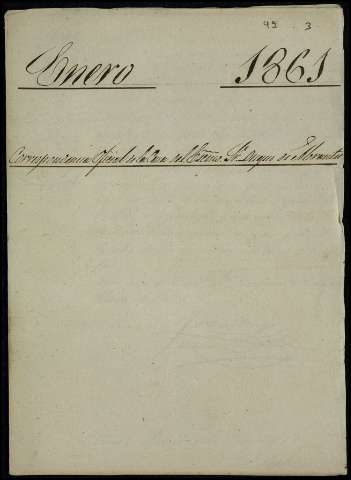 49 3
Enero 1861
Correspondencia Oficial de la Casa del Excmo. Sr. Duque de Abrantes